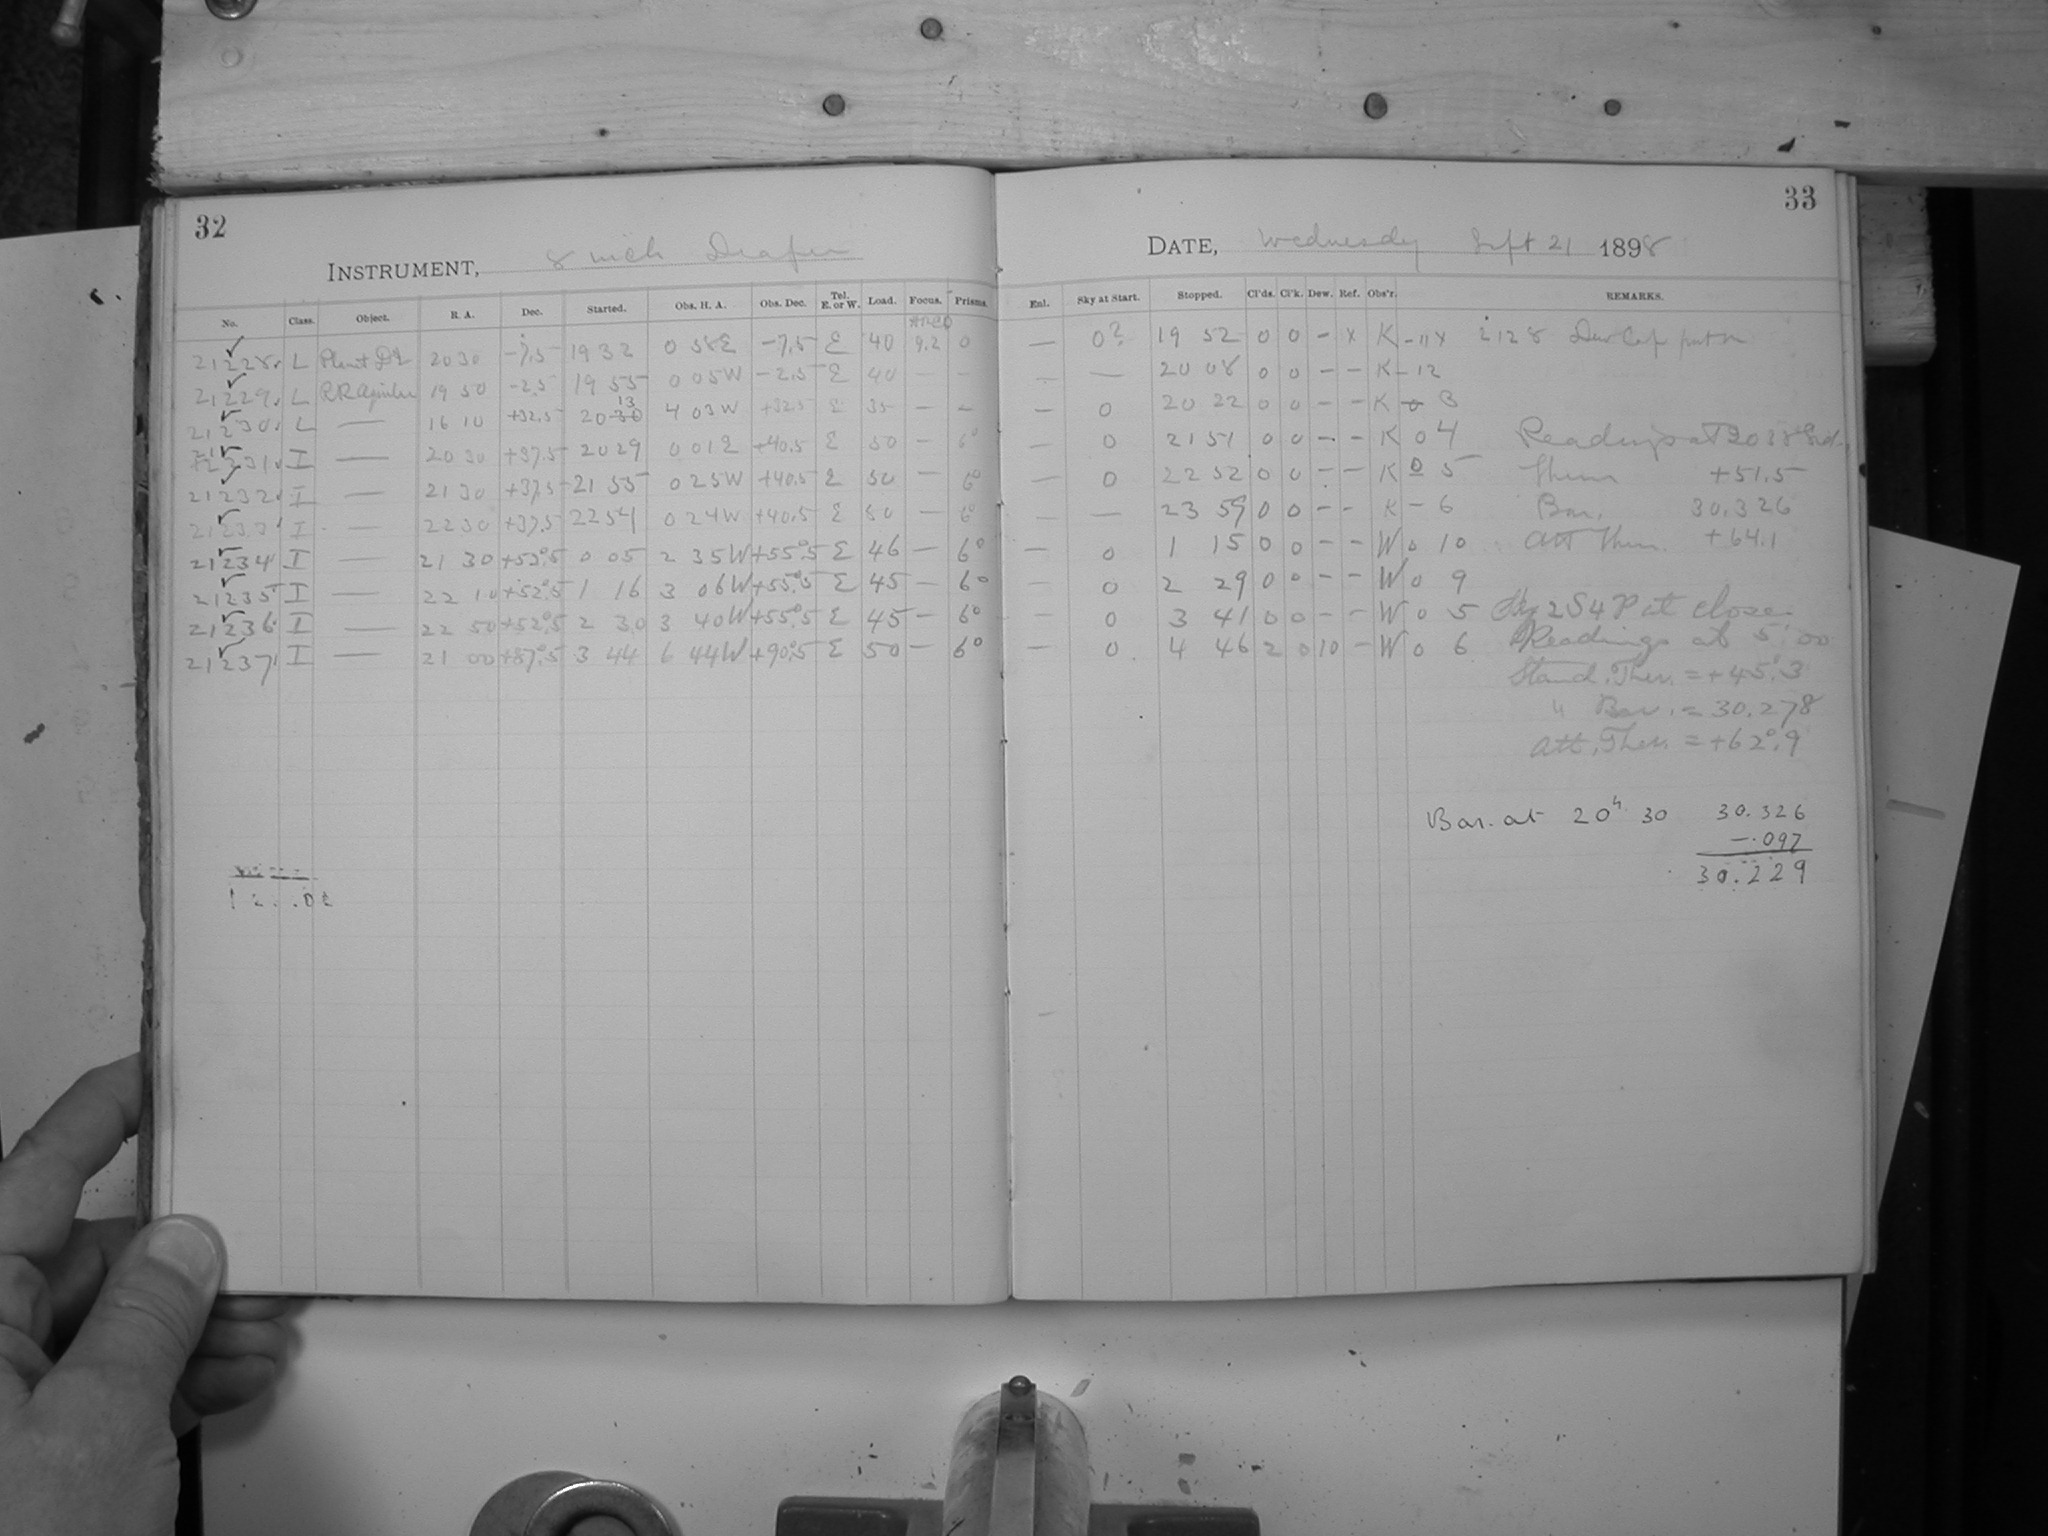 32
INSTRUMENT, 8 inch Draper
No. Class. Object. R. A. Dec. Started. Obs. H. A. Obs. Dec. Tel. E. or W. Load. Focus. Prisms.
21228 L Planet DQ 20 30 -7.5 19 32 0 58E -7.5 E 40 9.2 0
21229 L RR Aquilae 19 50 -2.5 19 55 0 05W -2.5 E 40 — —
21230 L — 16 10 +32.5 20 13 4 03W +32.5 E 35 — —
21231 I — 20 30 +37.5 20 29 0 01E +40.5 E 50 — 6°
21232 I — 21 30 +37.5 21 55 0 25W +40.5 E 50 — 6°
21233 I — 22 30 +37.5 22 54 0 24W +40.5 E 50 — 6°
21234 I — 21 30 +53°.5 0 05 2 35W +55°.5 E 46 — 6°
21235 I — 22 10 +52°.5 1 16 3 06W +55°.5 E 45 — 6°
21236 I — 22 50 +52°.5 2 30 3 40W +55°.5 E 45 — 6°
21237 I — 21 00 +87°.5 3 44 6 44W +90°.5 E 50 — 6°
33
DATE, Wednesday Sept 21 1898
Enl. Sky at Start. Stopped. Cl'ds. Cl'k. Dew. Ref. Obs'r. REMARKS.
— 0? 19 52 0 0 - x K - 11x Dew Cap put on
— — 20 08 0 0 - - K - 12
— 0 20 22 0 0 - - K
— 0 21 51 0 0 - - K 0 4 Readings at 20 38 Sid.
— 0 22 52 0 0 - - K 0 5 Therm +51.5
— — 23 59 0 0 - - K - 6 Bar. 30.326
— 0 1 15 0 0 - - W 0 10 Att Them. +64.1
— 0 2 29 0 0 - - W 0 9
— 0 3 41 0 0 - - W 0 5 Sky 2S4P at close.
— 0 4 46 2 0 10 - W 0 6 Readings at 5:00
Stand. Ther. = +45°.3
" Bar. = 30.278
Att. Ther. = +62°.9
Bar. at 20h 30 30.326
-.097
30.229